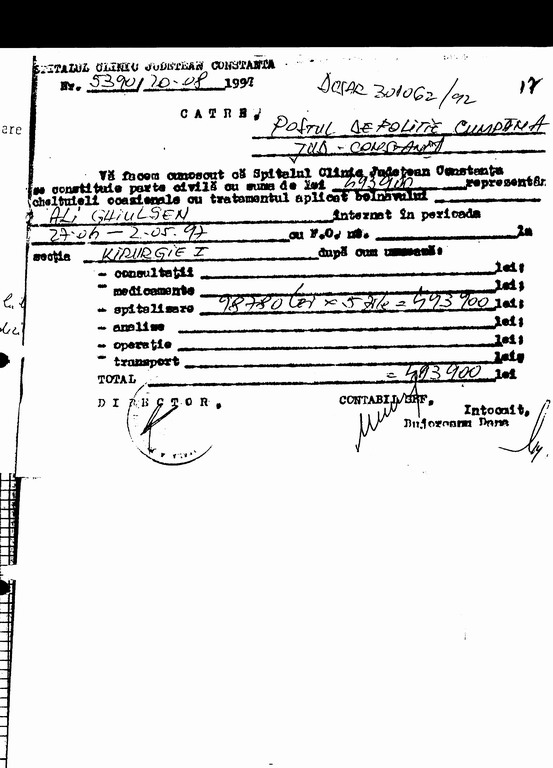 SPITALUL CLINIC JUDETEAN CONSTANTA
Nr. 5390/20-08 1997 DOSAR 301062/92 17
are
CATRE,
POSTUL DE POLITIE CUMPANA
JUD - CONSTANTA
Vă facem cunoscut că Spitalul Clinic Județean Constanta
se constituie parte civilă cu suma de lei 493900 reprezentân
cheltuieli ocazionale cu tratamentul aplicat bolnavului
ALI GHIULSEN internat în perioada
27.06 — 2.05.97 cu F.O. nr. în
secția KIRURGIE I după cum urmează:
- consultații lei;
- medicamente lei;
- spitalizare 98780 lei x 5 zile = 493900 lei;
- analize lei;
- operație lei;
- transport lei;
TOTAL = 493900 lei
DIRECTOR, CONTABIL SEF, Intocmit,
Bujoreanu Dana